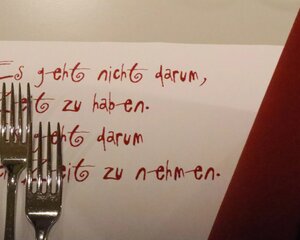 Es geht nicht darum,
Zeit zu haben.
geht darum
Zeit zu nehmen.